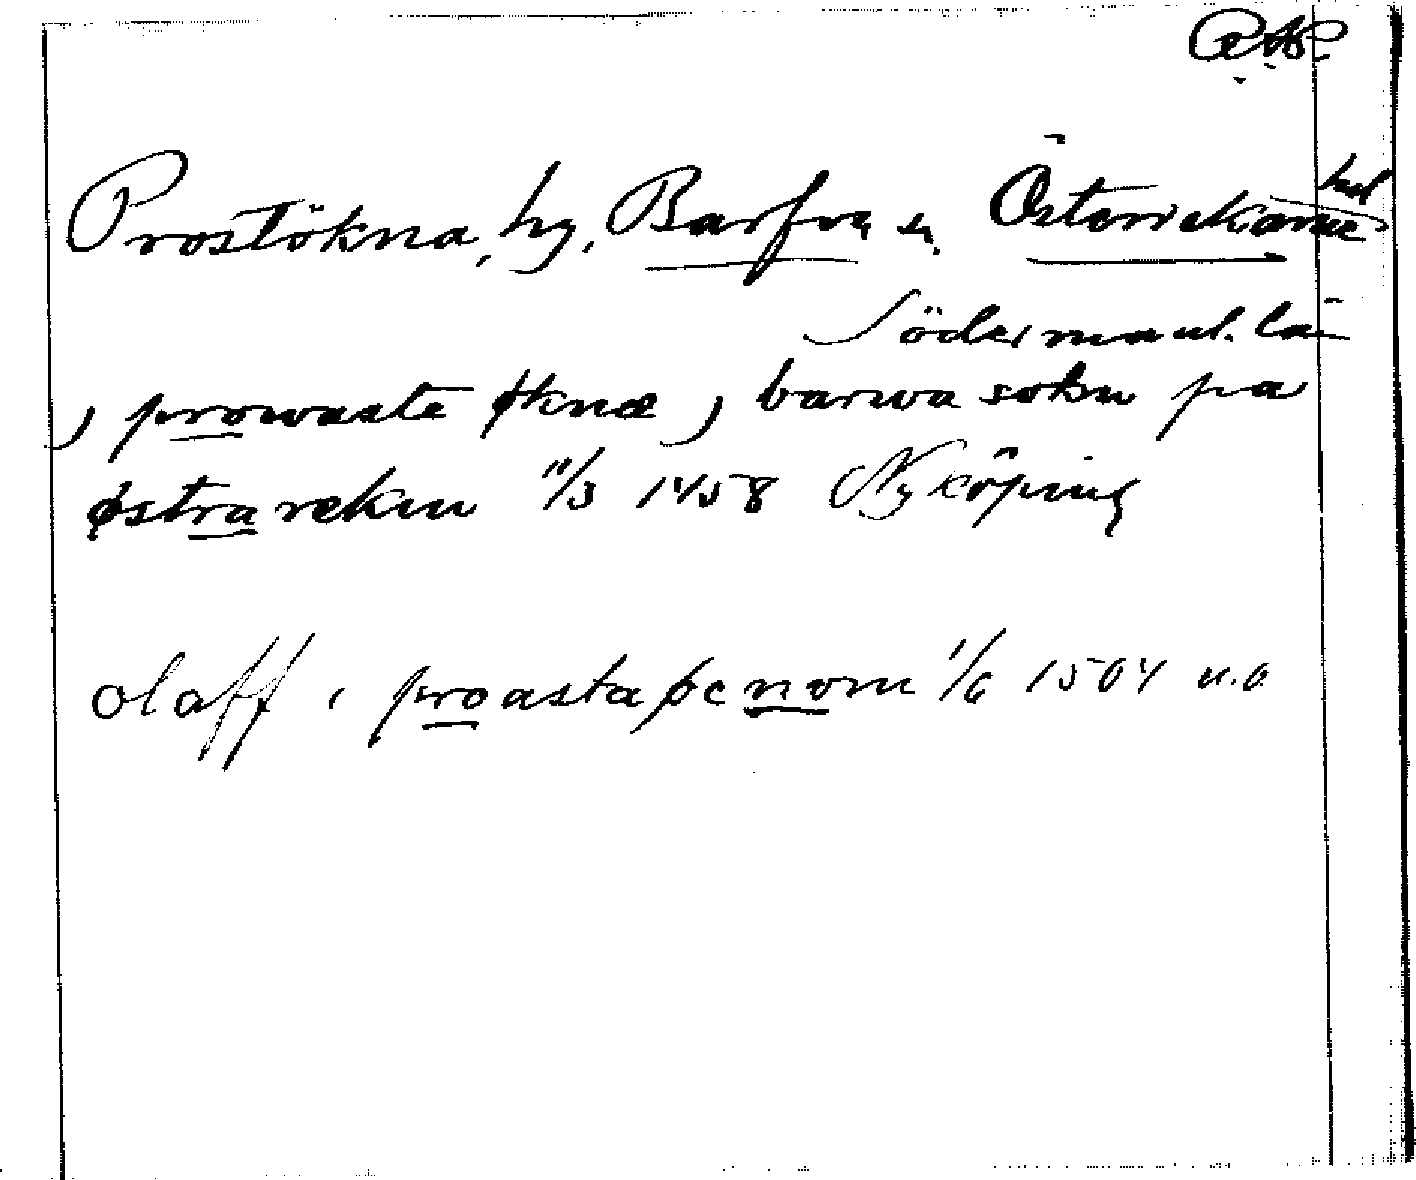 Prostökna, by, Barfva sn. Österrekarne hd
Södermanl. län
j prowaste øknæ j barwa sokn pa
østra rekin 11/3 1458 Nyköping
olaff i proasta øcnom 1/6 1504 n.o